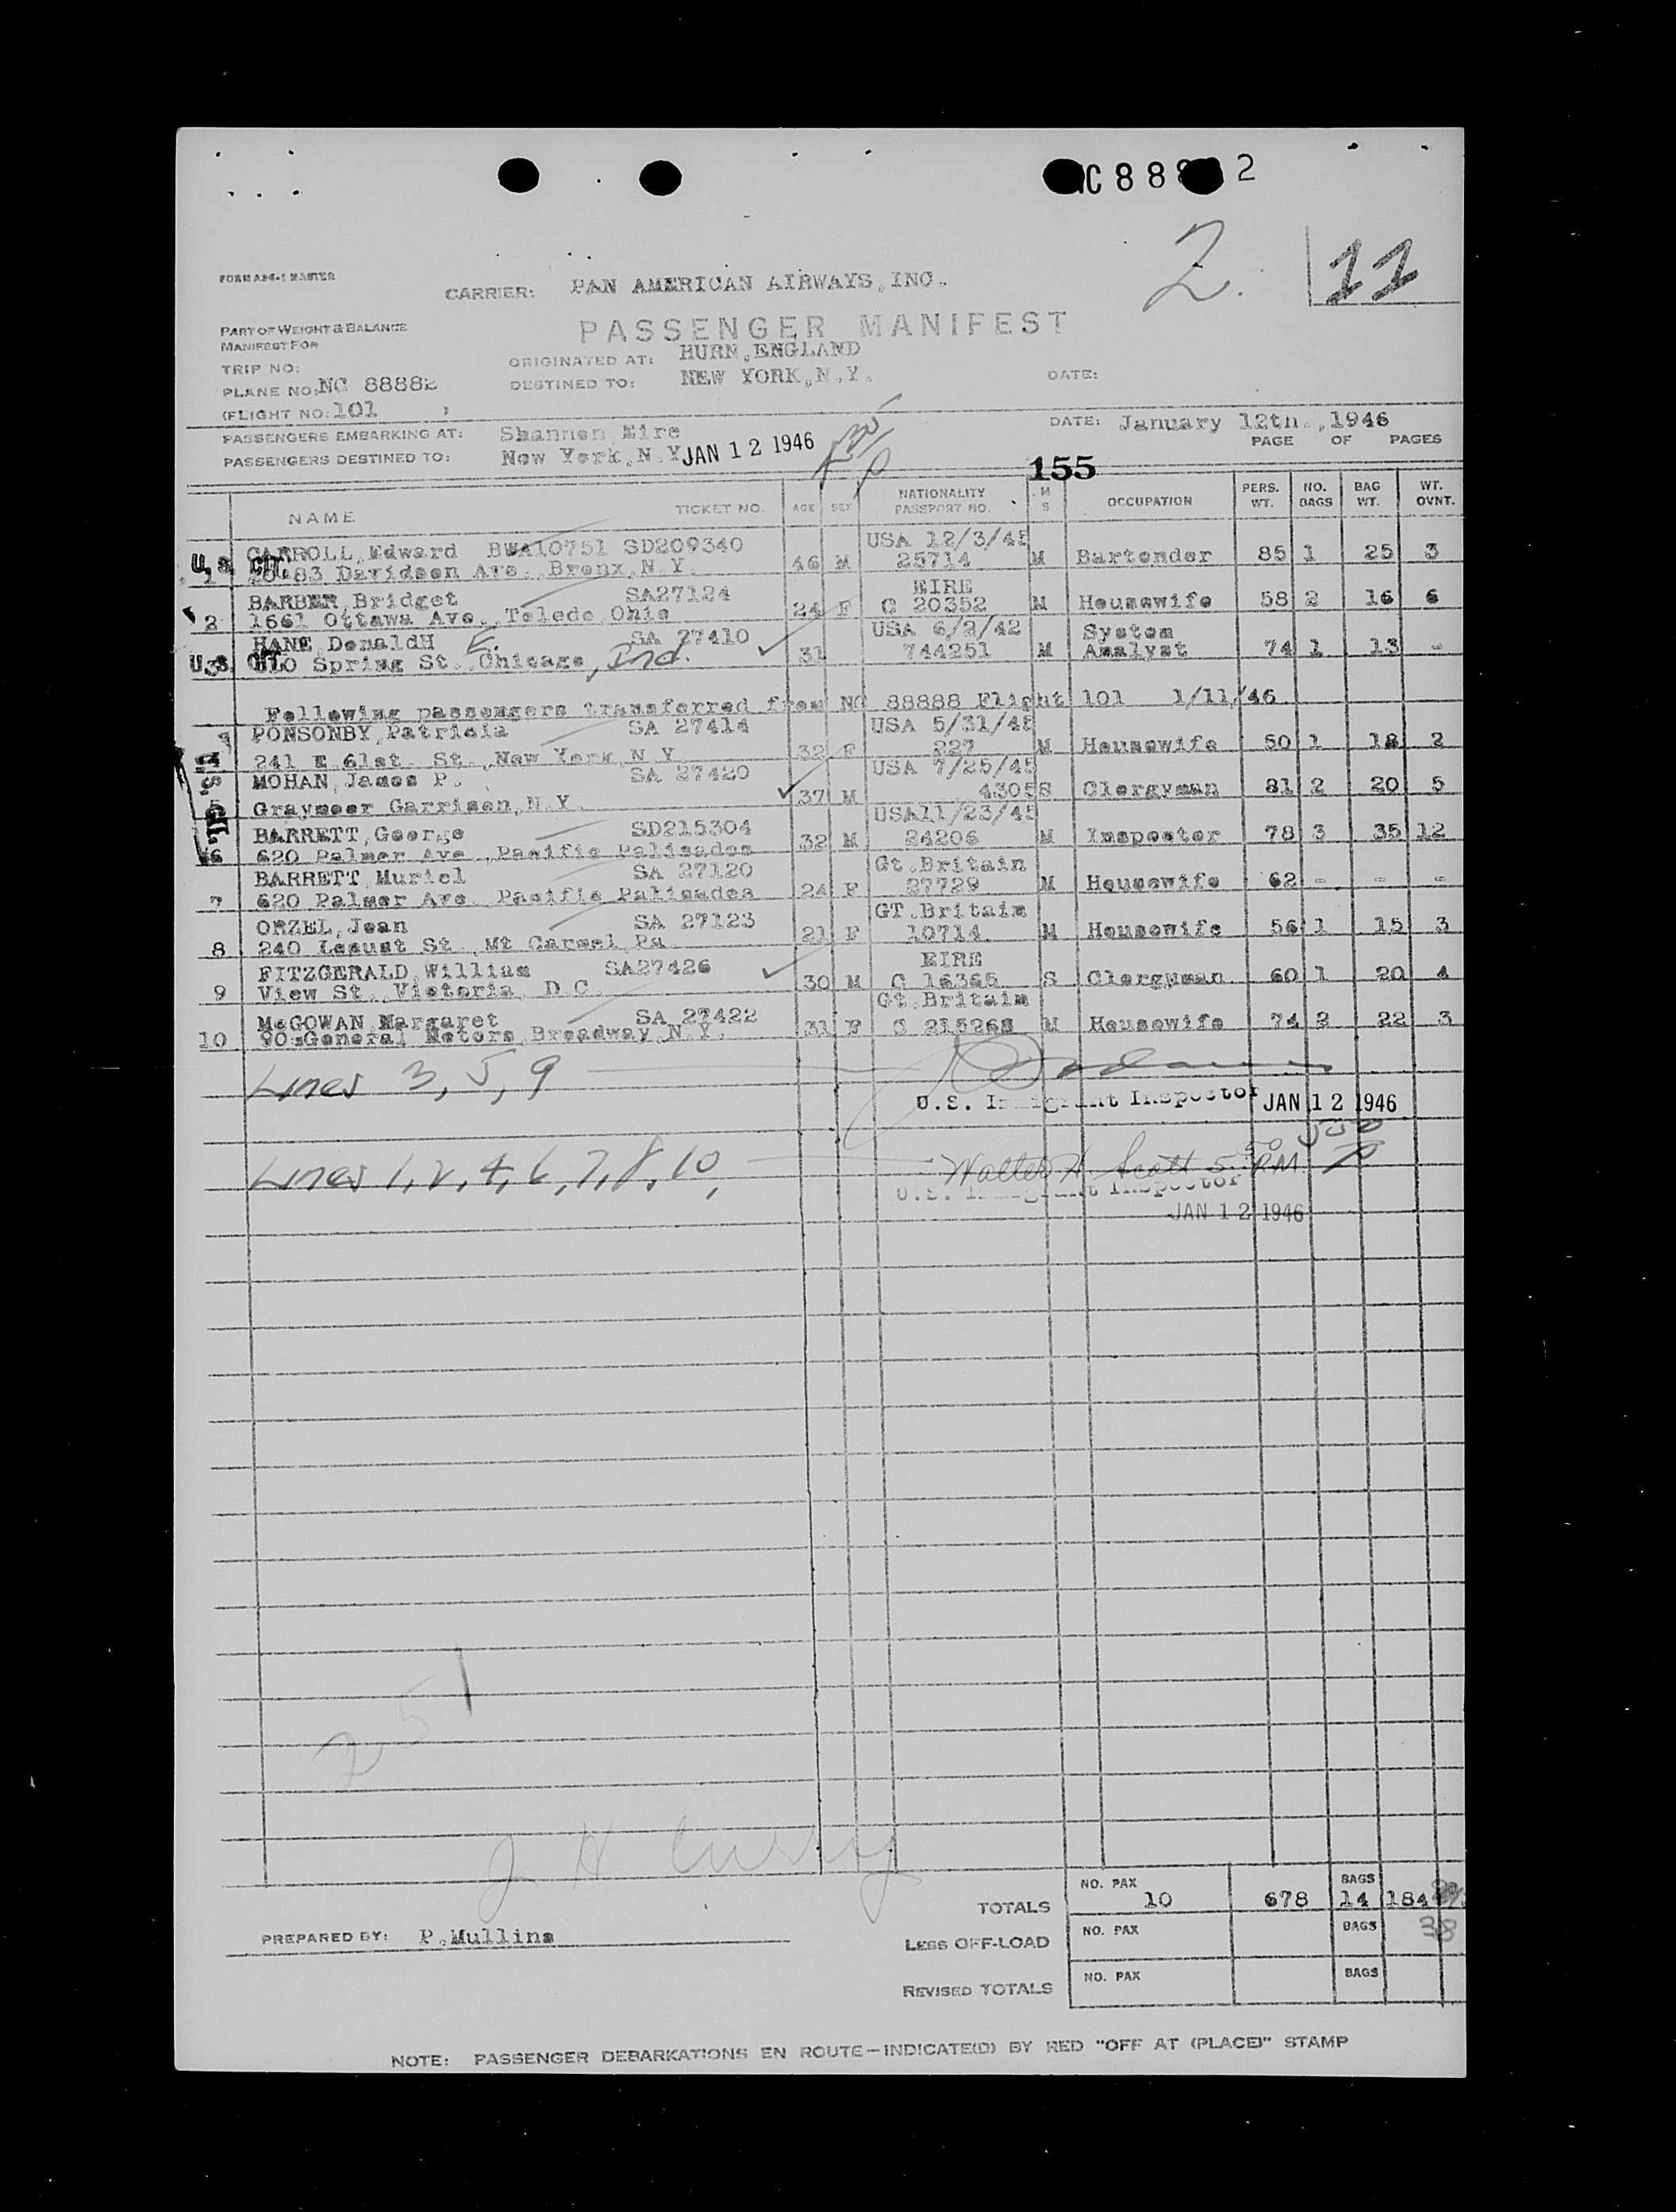 NC 88882
2. 11
FORM A26-1 MASTER
CARRIER: PAN AMERICAN AIRWAYS, INC.
PASSENGER MANIFEST
PART OF WEIGHT & BALANCE
MANIFEST FOR
TRIP NO:
ORIGINATED AT: HURN, ENGLAND
PLANE NO: NC 88882
DESTINED TO: NEW YORK, N.Y.
DATE:
(FLIGHT NO: 101 )
PASSENGERS EMBARKING AT: Shannon Eire
DATE: January 12th., 1946
PAGE OF PAGES
PASSENGERS DESTINED TO: New York, N.Y. JAN 12 1946
155
NAME TICKET NO. AGE SEX NATIONALITY PASSPORT NO. M S OCCUPATION PERS. WT. NO. BAGS BAG WT. WT. OVNT.
CARROLL, Edward BWA10751 SD209340 USA 12/3/45
U.S. CIT. 1 2083 Davidson Ave., Bronx, N.Y. 46 M 25714 M Bartender 85 1 25 3
BARBER, Bridget SA27124 EIRE
2 1661 Ottawa Ave., Toledo Ohio 24 F C 20352 M Housewife 58 2 16 6
HANE, DonaldH E. SA 27410 USA 6/2/42 System
U.S. CIT. 3 Spring St., Chicago, Ind. 31 744251 M Analyst 74 1 13 -
Following passengers transferred from NC 88888 Flight 101 1/11/46
PONSONBY, Patricia SA 27414 USA 5/31/45
U.S. CIT. 4 241 E 61st. St., New York, N.Y. 32 F 227 M Housewife 50 1 18 2
MOHAN, James P. SA 27420 USA 7/25/45
5 Graymoor Garrison, N.Y. 37 M 4305 S Clergyman 81 2 20 5
BARRETT, George SD215304 USA11/23/45
6 620 Palmer Ave., Pacific Palisades 32 M 24206 M Inspector 78 3 35 12
BARRETT, Muriel SA 27120 Gt.Britain
7 620 Palmer Ave. Pacific Palisades 24 F 27729 M Housewife 62 - - -
ORZEL, Jean SA 27123 GT.Britain
8 240 Locust St., Mt Carmel, Pa. 21 F 10714 M Housewife 56 1 15 3
FITZGERALD, William SA27426 EIRE
9 View St., Victoria, D.C. 30 M C 16365 S Clergyman 60 1 20 4
McGOWAN, Margaret SA 27422 Gt.Britain
10 90 General Motors, Broadway, N.Y. 31 F C 215268 M Housewife 74 2 22 3
Lines 3, 5, 9
U.S. Immigrant Inspector JAN 12 1946
Lines 1, 2, 4, 6, 7, 8, 10, Walter H. Scott 5:50 PM
U.S. Immigrant Inspector
JAN 12 1946
251
J H Curry
TOTALS NO. PAX 10 678 BAGS 14 184
PREPARED BY: P.Mullins
LESS OFF-LOAD NO. PAX BAGS 38
REVISED TOTALS NO. PAX BAGS
NOTE: PASSENGER DEBARKATIONS EN ROUTE—INDICATE(D) BY RED "OFF AT (PLACE)" STAMP